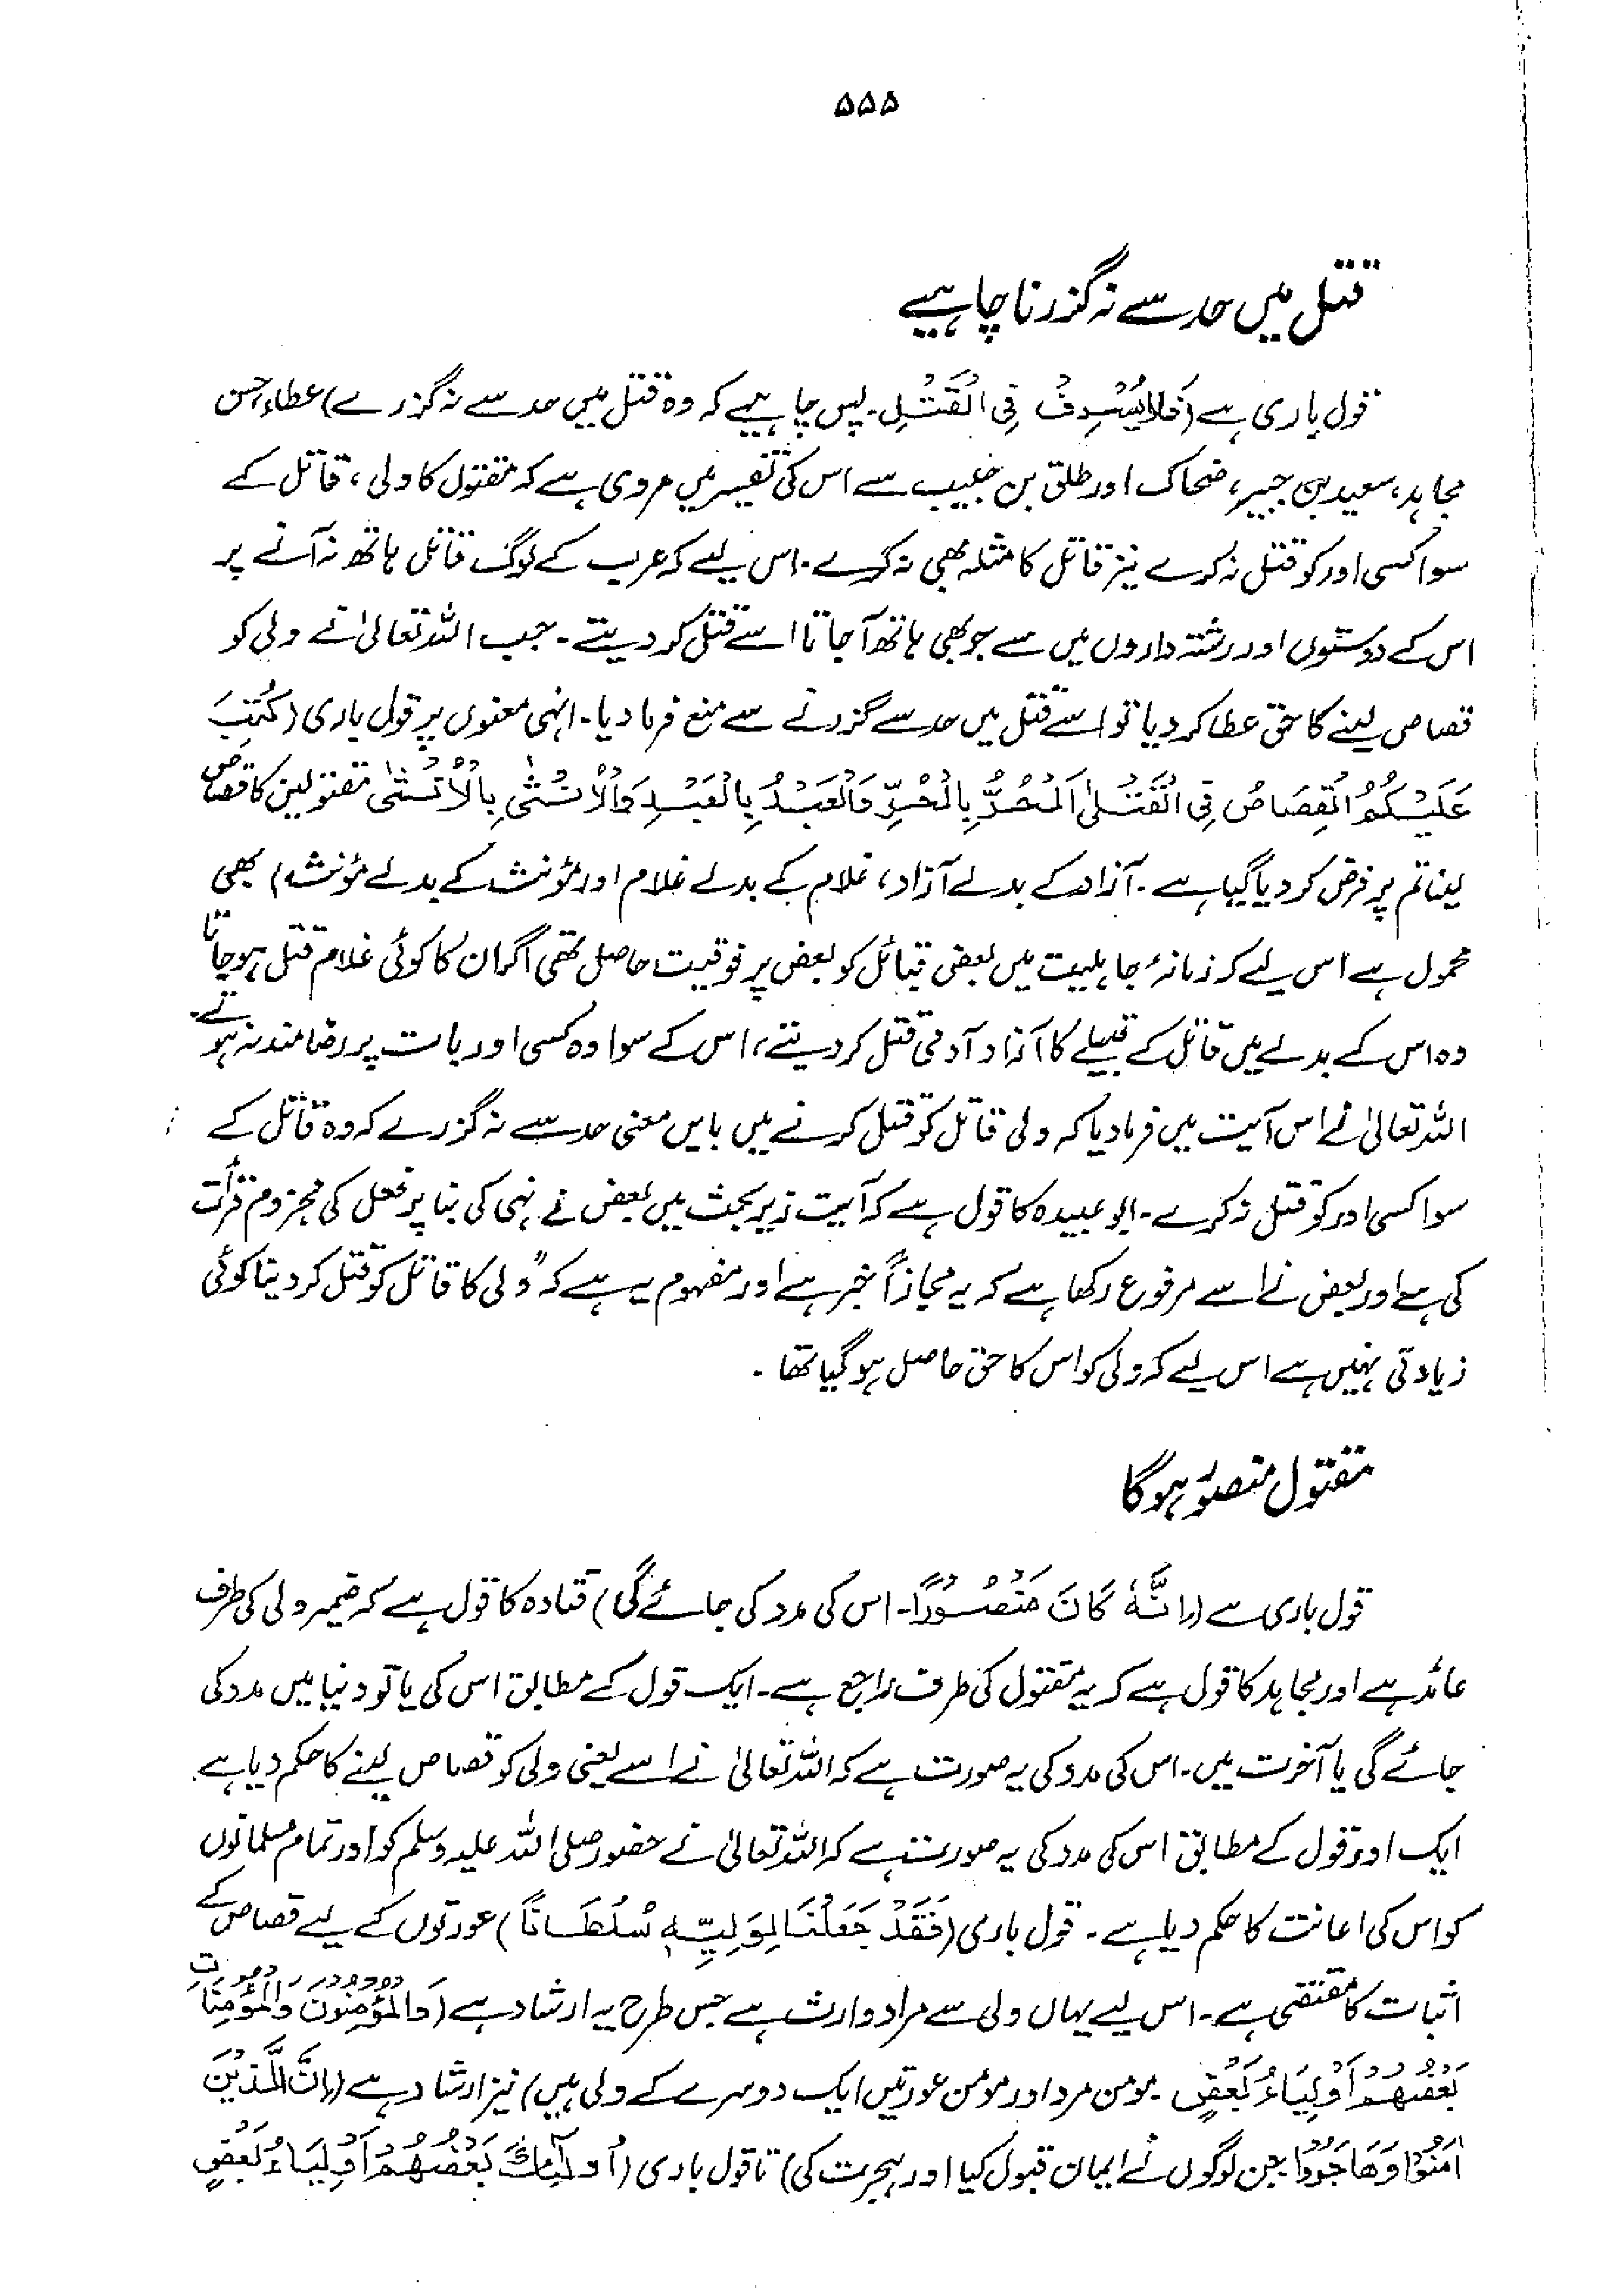 ۵۵۵
قتل میں حد سے نہ گزرنا چاہیے
قول باری ہے (فَلَا یُسْرِفْ فِی الْقَتْلِ۔ پس چاہیے کہ وہ قتل میں حد سے نہ گزرے) عطاء، حسن
مجاہد، سعید بن جبیر، ضحاک اور طلق بن حبیب سے اس کی تفسیر میں مروی ہے کہ مقتول کا ولی، قاتل کے
سوا کسی اور کو قتل نہ کرے نیز قاتل کا مثلہ بھی نہ کرے۔ اس لیے کہ عرب کے لوگ قاتل ہاتھ نہ آنے پر
اس کے دوستوں اور رشتہ داروں میں سے جو بھی ہاتھ آ جاتا اسے قتل کر دیتے۔ جب اللہ تعالیٰ نے ولی کو
قصاص لینے کا حق عطا کر دیا تو اسے قتل میں حد سے گزرنے سے منع فرما دیا۔ انہی معنوں پر قول باری (کُتِبَ
عَلَیْکُمُ الْقِصَاصُ فِی الْقَتْلٰی اَلْحُرُّ بِالْحُرِّ وَالْعَبْدُ بِالْعَبْدِ وَالْاُنْثٰی بِالْاُنْثٰی مقتولین کا قصاص
لینا تم پر فرض کر دیا گیا ہے۔ آزاد کے بدلے آزاد، غلام کے بدلے غلام اور مؤنث کے بدلے مؤنث) بھی
محمول ہے اس لیے کہ زمانۂ جاہلیت میں بعض قبائل کو بعض پر فوقیت حاصل تھی اگر ان کا کوئی غلام قتل ہو جاتا
وہ اس کے بدلے میں قاتل کے قبیلے کا آزاد آدمی قتل کر دیتے، اس کے سوا وہ کسی اور بات پر رضامند نہ ہوتے۔
اللہ تعالیٰ نے اس آیت میں فرما دیا کہ ولی قاتل کو قتل کرنے میں بایں معنی حد سے نہ گزرے کہ وہ قاتل کے
سوا کسی اور کو قتل نہ کرے۔ ابو عبیدہ کا قول ہے کہ آیت زیر بحث میں بعض نے نہی کی بنا پر فعل کی مجزوم قرأت
کی ہے اور بعض نے اسے مرفوع رکھا ہے کہ یہ مجازاً خبر ہے اور مفہوم یہ ہے کہ "ولی کا قاتل کو قتل کر دینا کوئی
زیادتی نہیں ہے اس لیے کہ ولی کو اس کا حق حاصل ہو گیا تھا۔
مقتول منصور ہوگا
قول باری ہے (اِنَّهٗ کَانَ مَنْصُوْرًا۔ اس کی مدد کی جائے گی) قتادہ کا قول ہے کہ ضمیر ولی کی طرف
عائد ہے اور مجاہد کا قول ہے کہ یہ مقتول کی طرف راجع ہے۔ ایک قول کے مطابق اس کی یا تو دنیا میں مدد کی
جائے گی یا آخرت میں۔ اس کی مدد کی یہ صورت ہے کہ اللہ تعالیٰ نے اسے یعنی ولی کو قصاص لینے کا حکم دیا ہے۔
ایک اور قول کے مطابق اس کی مدد کی یہ صورت ہے کہ اللہ تعالیٰ نے حضور صلی اللہ علیہ وسلم کو اور تمام مسلمانوں
کو اس کی اعانت کا حکم دیا ہے۔ قول باری (فَقَدْ جَعَلْنَا لِوَلِیِّهٖ سُلْطَانًا) عورتوں کے لیے قصاص کے
اثبات کا مقتضی ہے۔ اس لیے یہاں ولی سے مراد وارث ہے جس طرح یہ ارشاد ہے (وَالْمُؤْمِنُوْنَ وَالْمُؤْمِنَاتُ
بَعْضُهُمْ اَوْلِیَاءُ بَعْضٍ۔ مومن مرد اور مومن عورتیں ایک دوسرے کے ولی ہیں) نیز ارشاد ہے (اِنَّ الَّذِیْنَ
اٰمَنُوْا وَهَاجَرُوْا جن لوگوں نے ایمان قبول کیا اور ہجرت کی) تا قول باری (اُولٰٓئِکَ بَعْضُهُمْ اَوْلِیَاءُ بَعْضٍ